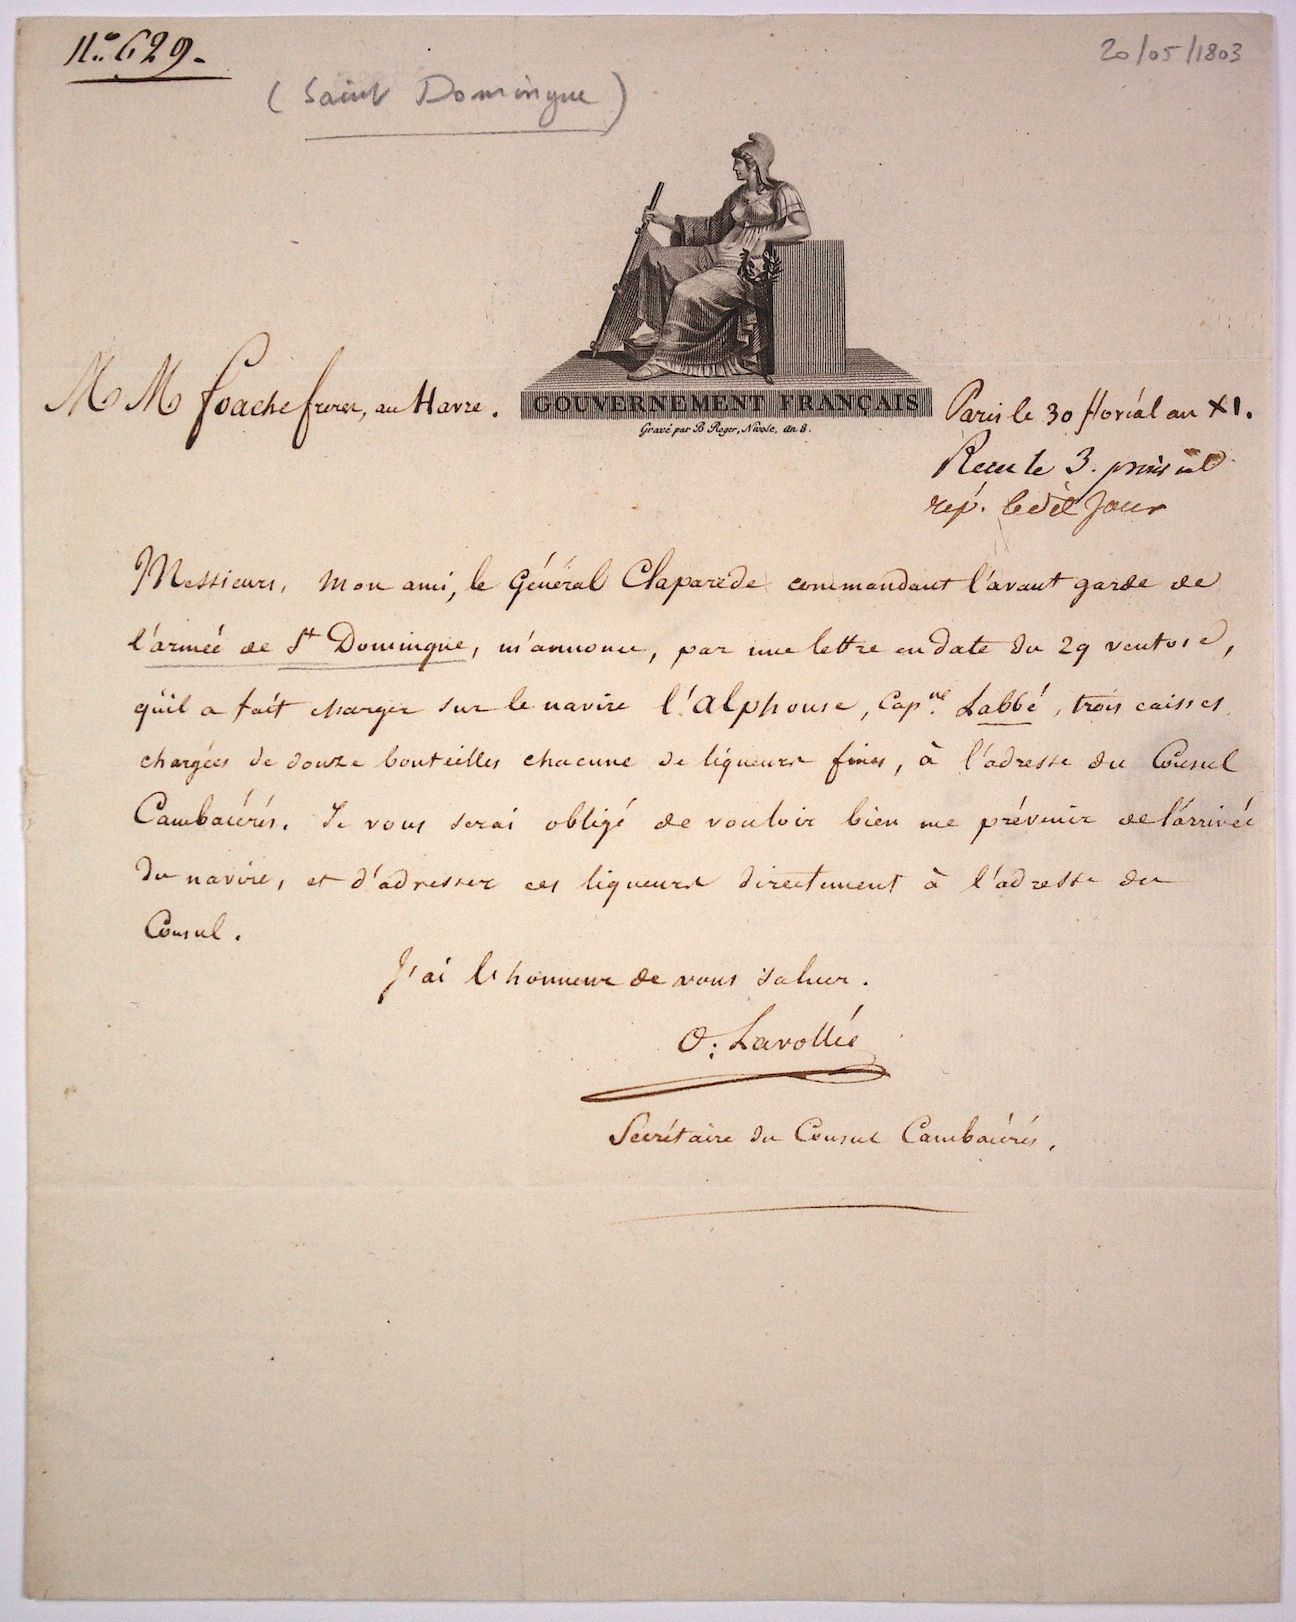 N.º 629.
20/05/1803
(Saint Domingue)
GOUVERNEMENT FRANÇAIS
Gravé par B Roger, Nivose, an 8.
M M foache freres, au Havre.
Paris le 30 floréal an XI.
Recu le 3. prairial
rép. le dit Jour
Messieurs, mon ami, le Général Claparède commandant l'avant garde de
l'armée de St Domingue, m'annonce, par une lettre en date du 29 ventose,
qu'il a fait charger sur le navire l'Alphonse, Cap.ne Labbé, trois caisses
chargées de douze bouteilles chacune de liqueurs fines, à l'adresse du Consul
Cambacérés. Je vous serai obligé de vouloir bien me prévenir de l'arrivée
du navire, et d'adresser ces liqueurs directement à l'adresse du
Consul.
J'ai l'honneur de vous saluer.
O: Lavollée
Secrétaire du Consul Cambacérés.